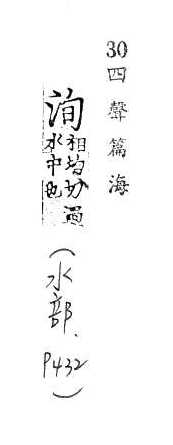 30四聲篇海
洵相均切過水中也(水部.P432)